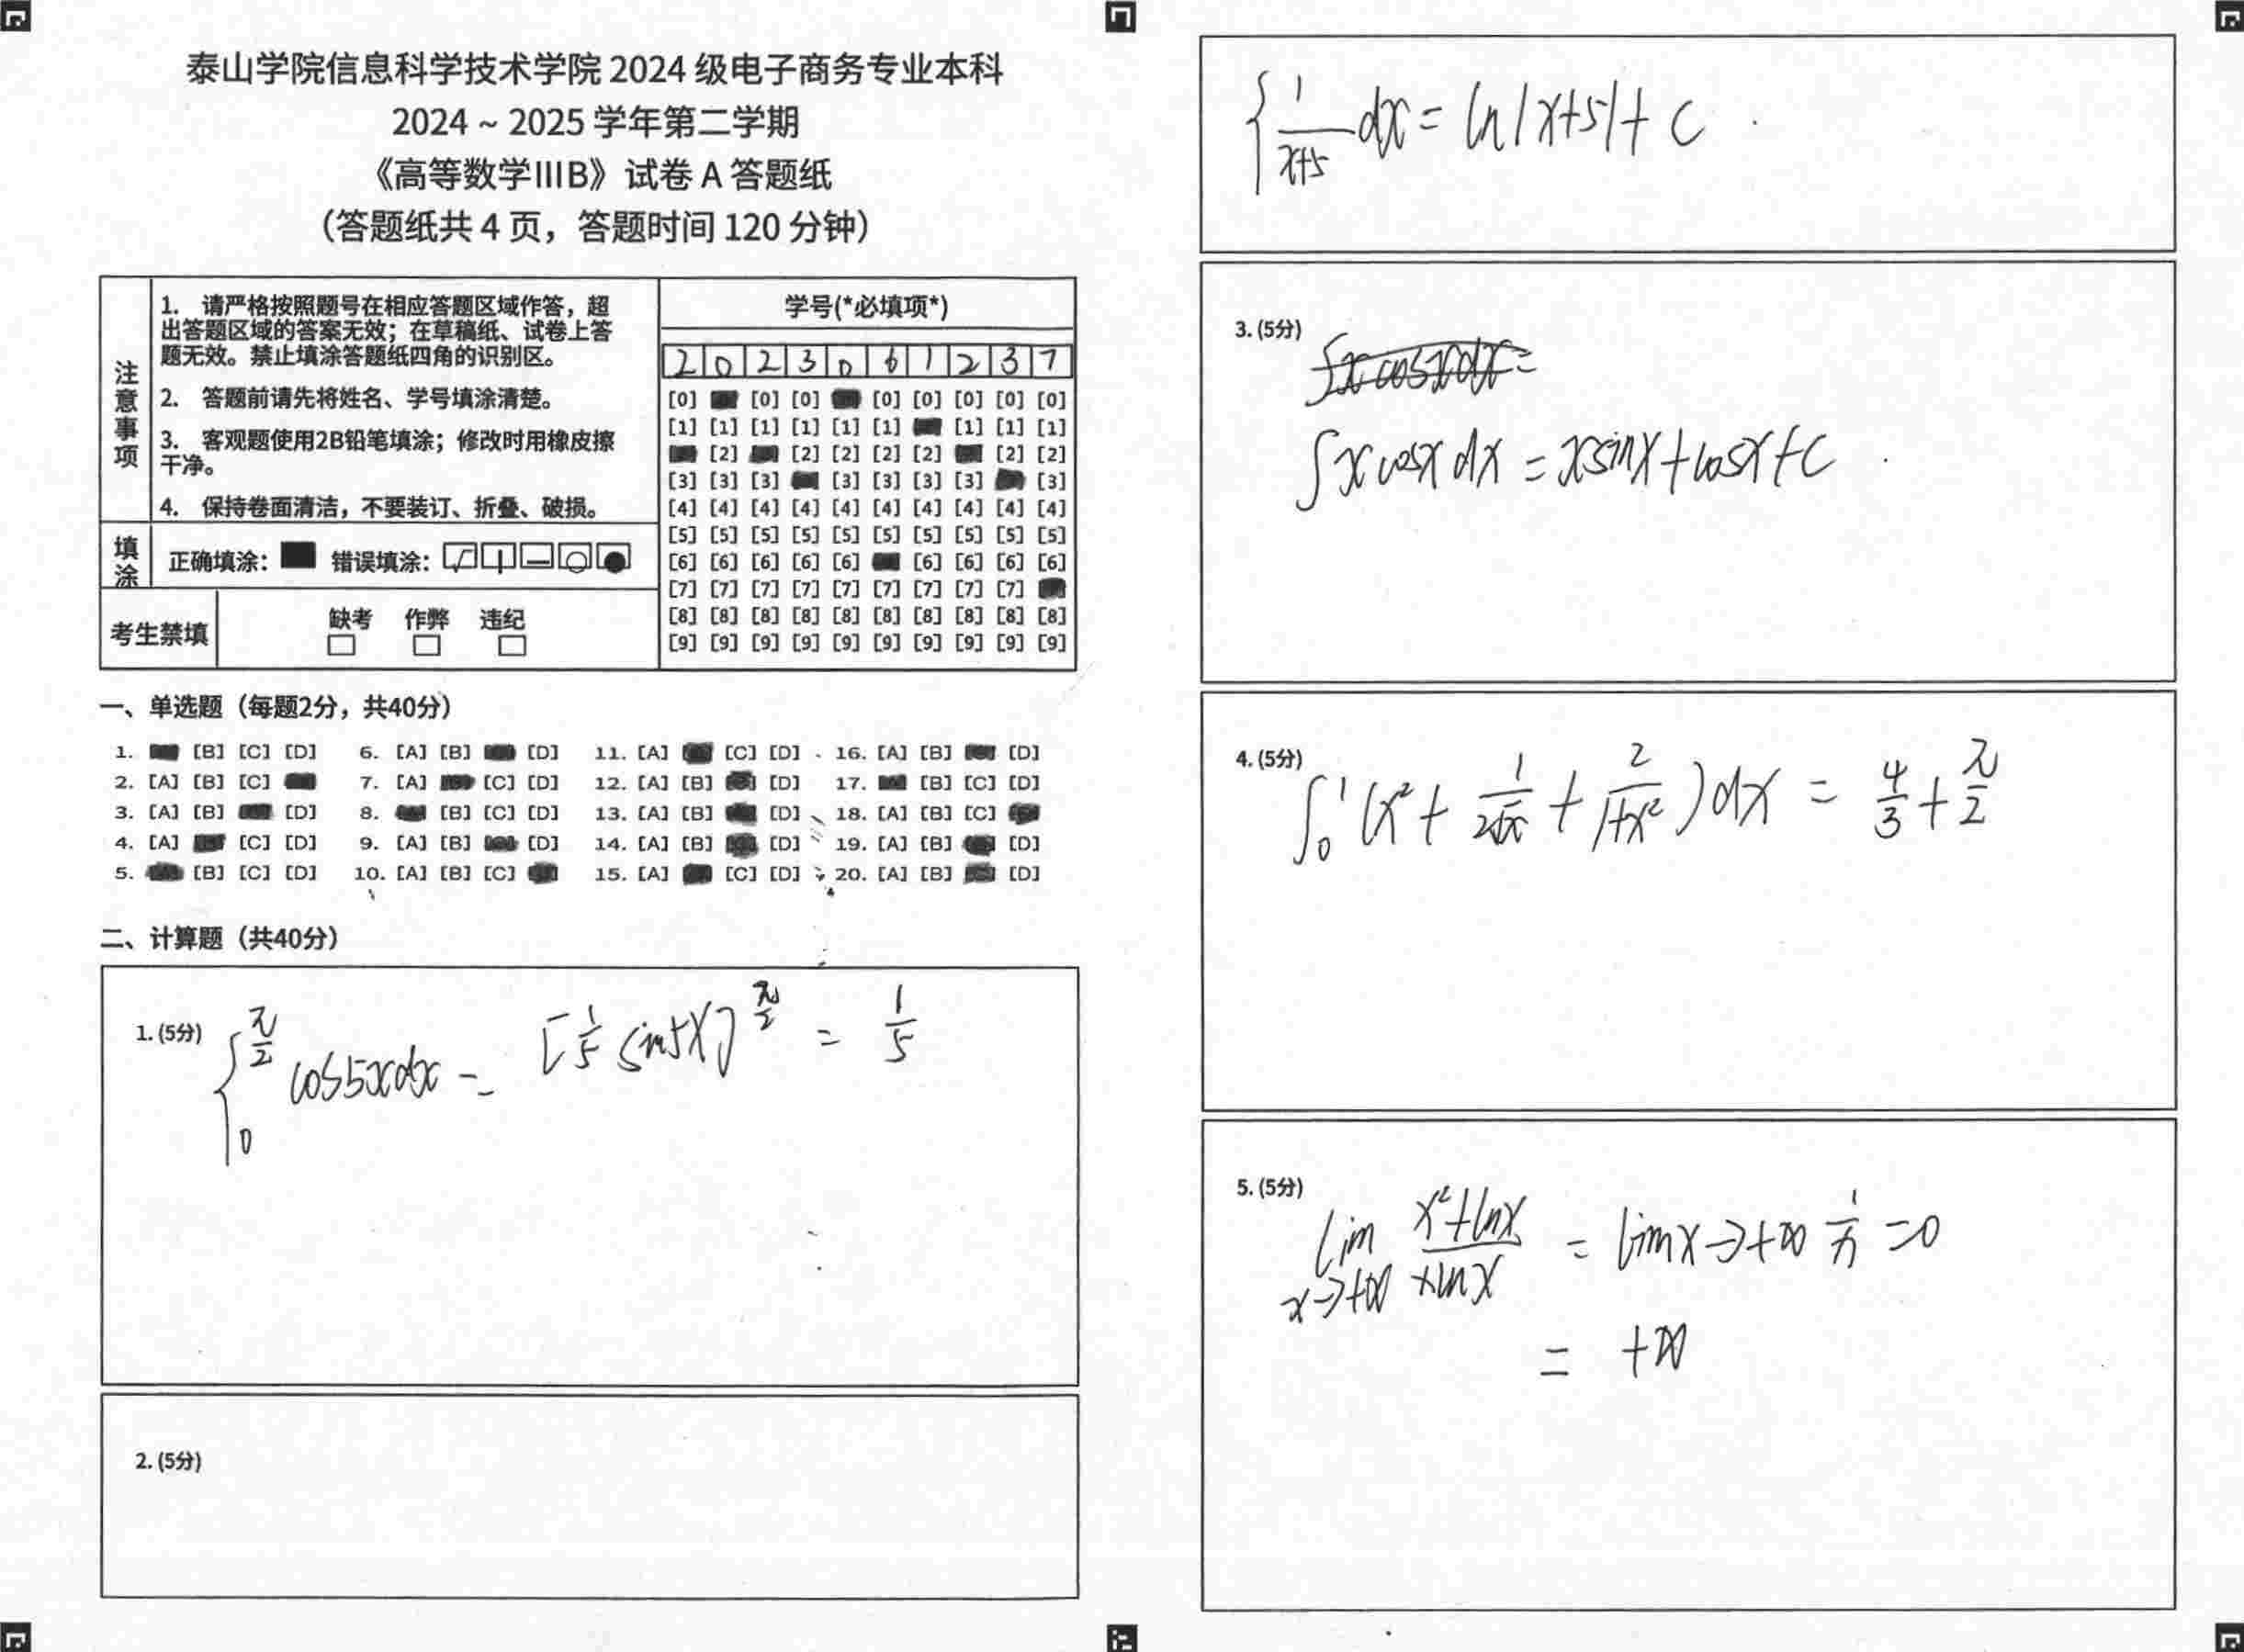 泰山学院信息科学技术学院 2024 级电子商务专业本科
2024 ~ 2025 学年第二学期
《高等数学IIIB》试卷 A 答题纸
（答题纸共 4 页，答题时间 120 分钟）
注意事项
1. 请严格按照题号在相应答题区域作答，超
出答题区域的答案无效；在草稿纸、试卷上答
题无效。禁止填涂答题纸四角的识别区。
2. 答题前请先将姓名、学号填涂清楚。
3. 客观题使用2B铅笔填涂；修改时用橡皮擦
干净。
4. 保持卷面清洁，不要装订、折叠、破损。
填涂
正确填涂： 错误填涂：
考生禁填
缺考 作弊 违纪
学号(*必填项*)
2 0 2 3 0 6 1 2 3 7
[0] [0] [0] [0] [0] [0] [0] [0]
[1] [1] [1] [1] [1] [1] [1] [1] [1]
[2] [2] [2] [2] [2] [2] [2]
[3] [3] [3] [3] [3] [3] [3] [3]
[4] [4] [4] [4] [4] [4] [4] [4] [4] [4]
[5] [5] [5] [5] [5] [5] [5] [5] [5] [5]
[6] [6] [6] [6] [6] [6] [6] [6] [6]
[7] [7] [7] [7] [7] [7] [7] [7] [7]
[8] [8] [8] [8] [8] [8] [8] [8] [8] [8]
[9] [9] [9] [9] [9] [9] [9] [9] [9] [9]
一、单选题（每题2分，共40分）
1. [B] [C] [D] 6. [A] [B] [D] 11. [A] [C] [D] 16. [A] [B] [D]
2. [A] [B] [C] 7. [A] [C] [D] 12. [A] [B] [D] 17. [B] [C] [D]
3. [A] [B] [D] 8. [B] [C] [D] 13. [A] [B] [D] 18. [A] [B] [C]
4. [A] [C] [D] 9. [A] [B] [D] 14. [A] [B] [D] 19. [A] [B] [D]
5. [B] [C] [D] 10. [A] [B] [C] 15. [A] [C] [D] 20. [A] [B] [D]
二、计算题（共40分）
1. (5分) ∫₀^(π/2) cos5xdx = [1/5 sin5x]^(π/2) = 1/5
2. (5分)
∫ 1/(x+5) dx = ln|x+5| + C
3. (5分) ∫x cosxdx =
∫x cosx dx = xsinx + cosx + C
4. (5分) ∫₀¹ (x² + 1/(2√x) + 2/(1+x²)) dx = 4/3 + π/2
5. (5分) lim x→+∞ (x²+lnx)/(xlnx) = lim x→+∞ 1/n = 0
= +∞